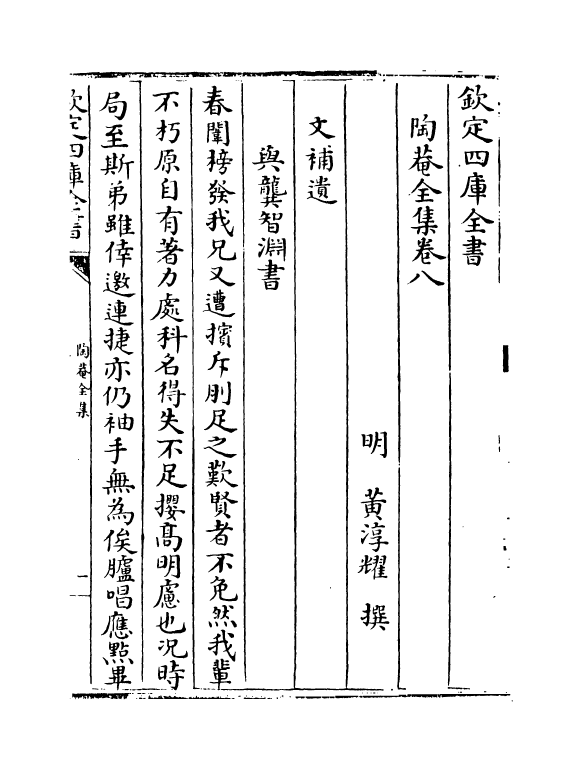 欽定四庫全書
陶菴全集卷八
明　黃淳耀　撰
文補遺
與龔智淵書
春闈榜發我兄又遭擯斥刖足之歎賢者不免然我輩
不朽原自有著力處科名得失不足攖髙明慮也况時
局至斯弟雖倖邀連捷亦仍袖手無為俟臚唱應點畢
欽定四庫全書
陶菴全集
一